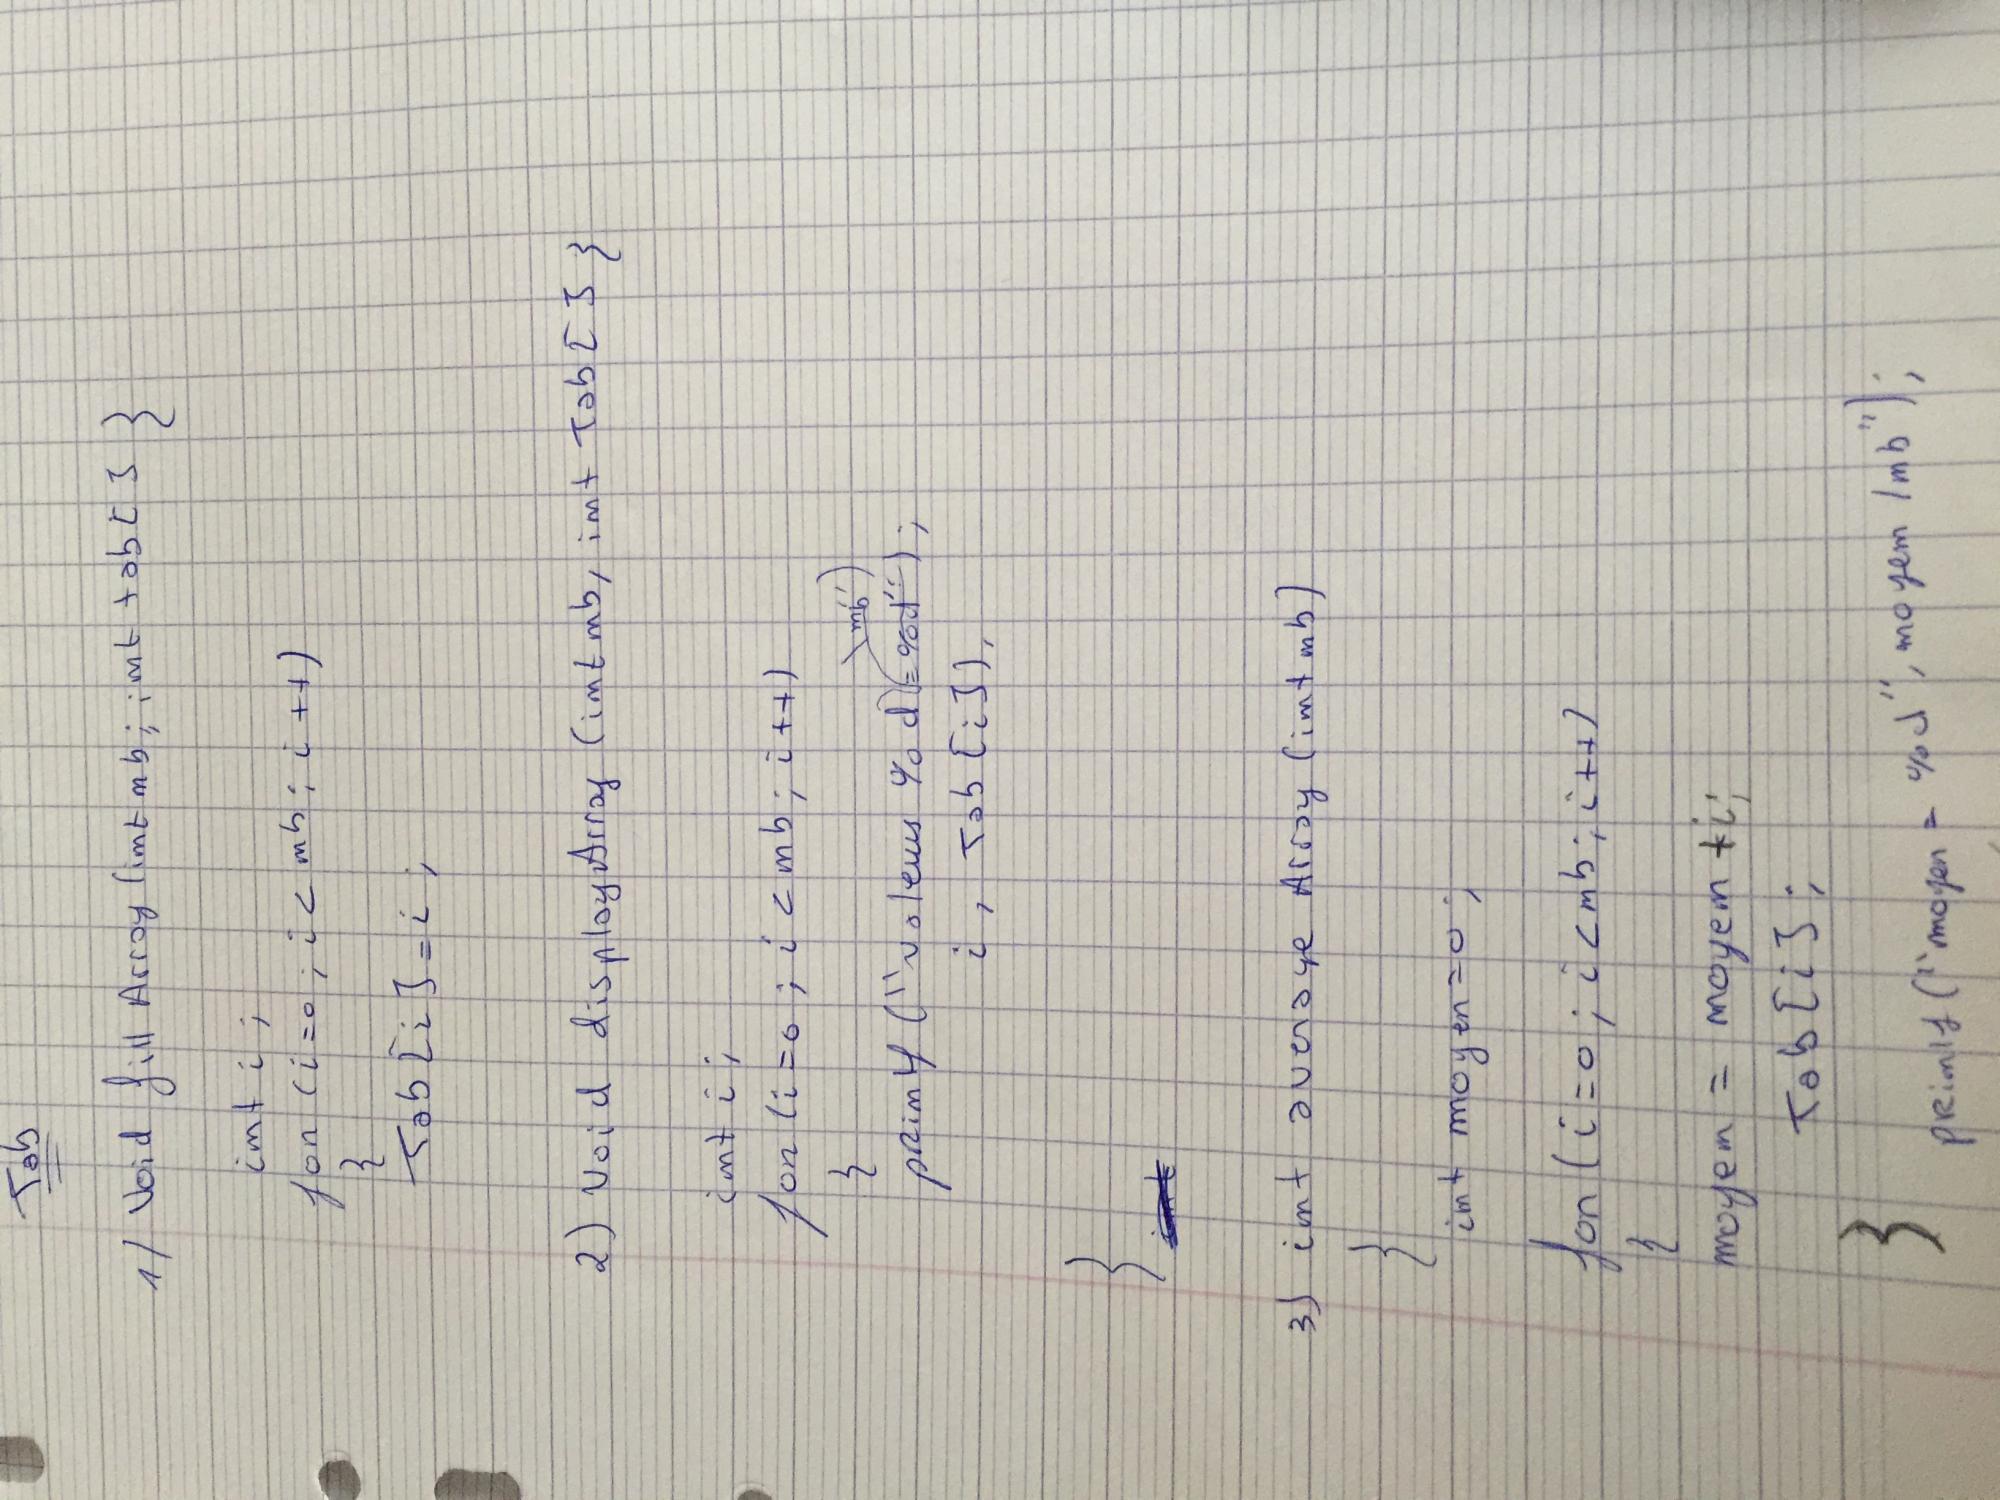 Tab
1/ Void fill Array (int nb; int tab[]}
int i;
for (i=0; i< nb; i++)
}
Tab[i]=i;
2) Void displayArray (int nb, int Tab[]}
int i;
for (i=0; i< nb; i++)
}
printf ("valeurs %d =%d");
i, Tab[i]),
}
3) int average Array (int nb)
}
int moyen=0;
for (i=0; i<nb; i++)
}
moyen = moyen +i;
Tab[i];
}
printf ("moyen = %d", moyen /nb");